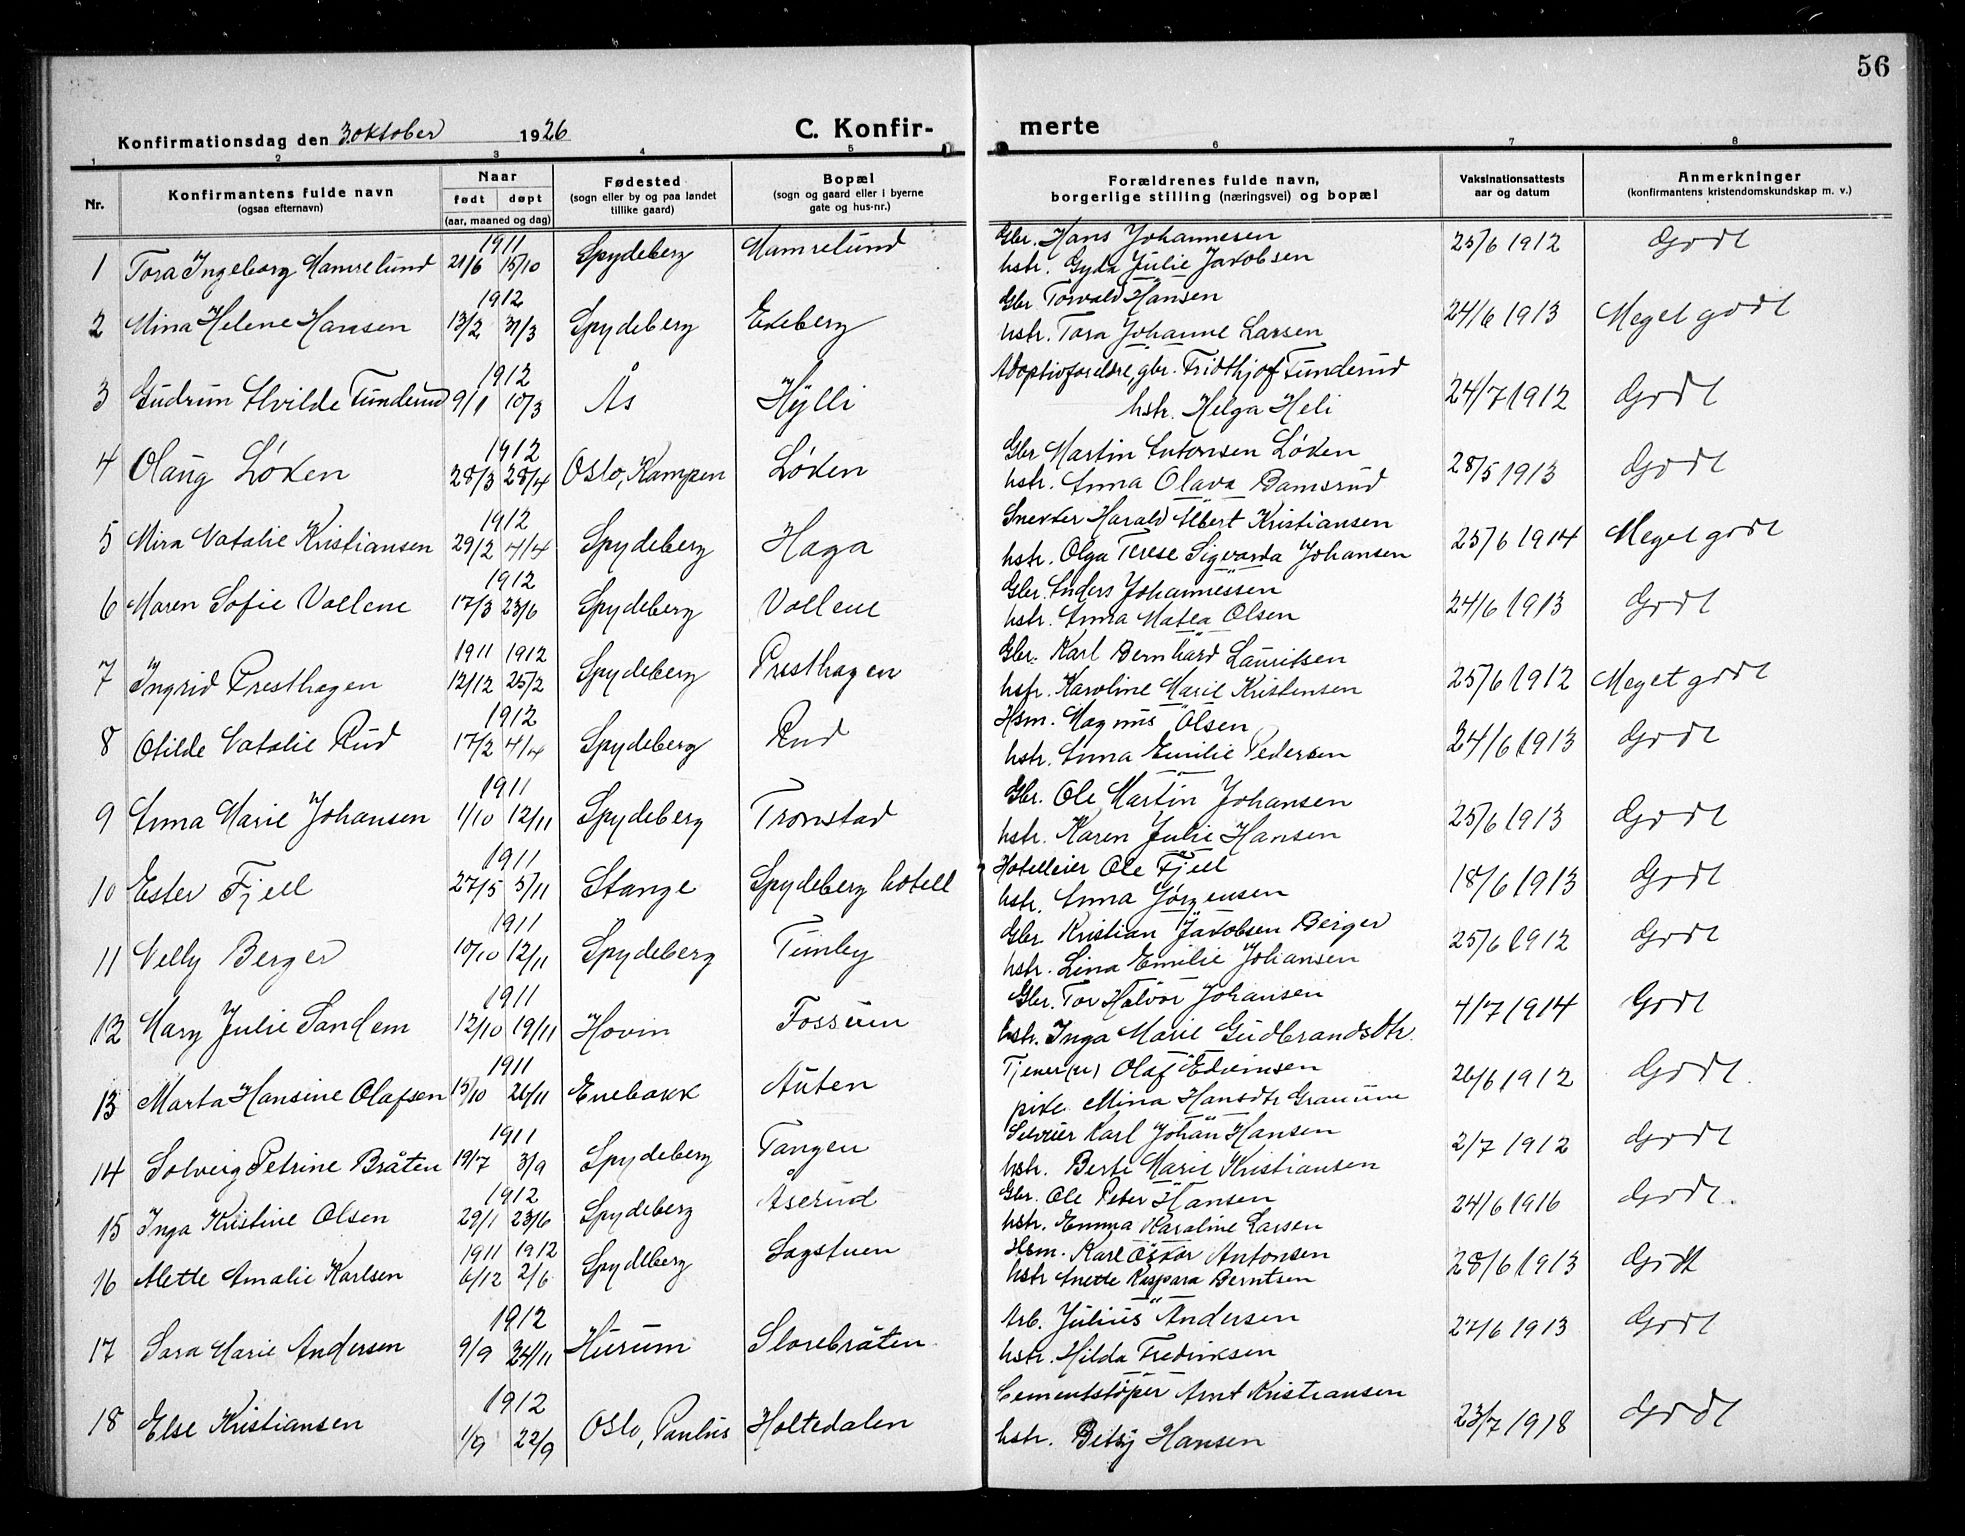 56
Konfirmationsdag den 3. oktober 1926
C. Konfir- merte
1 2 3 4 5 6 7 8
Nr. Konfirmantens fulde navn (ogsaa efternavn) Naar født døpt (aar, maaned og dag) Fødested (sogn eller by og paa landet tillike gaard) Bopæl (sogn og gaard eller i byerne gate og hus-nr.) Forældrenes fulde navn, borgerlige stilling (næringsvei) og bopæl Vaksinationsattests aar og datum Anmerkninger (konfirmantens kristendomskundskap m. v.)
1 Tora Ingeborg Mamrelund 1911 21/6 15/10 Spydeberg Mamrelund Gbr. Hans Johannesen 25/6 1912 Godt
hstr. Gyda Julie Jakobsen
2 Mina Helene Hansen 1912 13/2 31/3 Spydeberg Ekeberg Gbr. Torvald Hansen 24/6 1913 Meget godt
hstr. Tora Johanne Larsen
3 Gudrun Alvilde Tunderud 1912 9/1 10/3 Ås Hylli Adoptivforeldre, gbr. Fridthjof Tunderud 24/7 1912 Godt
hstr. Helga Heli
4 Olaug Løken 1912 28/3 28/4 Oslo, Kampen Løken Gbr Martin Antonsen Løken 28/5 1913 Godt
hstr. Anna Olava Bamsrud
5 Mira Natalie Kristiansen 1912 29/2 4/4 Spydeberg Haga Snekker Harald Albert Kristiansen 25/6 1914 Meget godt
hstr. Olga Terese Sigvarda Johansen
6 Maren Sofie Vollene 1912 17/3 23/6 Spydeberg Vollene Gbr. Anders Johannessen 24/6 1913 Godt
hstr. Anna Matea Olsen
7 Ingrid Presthagen 1911 1912 12/12 25/2 Spydeberg Presthagen Gbr. Karl Bernhard Lauritsen 25/6 1912 Meget godt
hstr. Karoline Marie Kristensen
8 Otilde Natalie Rud 1912 17/2 4/4 Spydeberg Rud Hsm. Magnus Olsen 24/6 1913 Godt
hstr. Anna Emilie Pedersen
9 Anna Marie Johansen 1911 1/10 12/11 Spydeberg Tronstad Gbr. Ole Martin Johansen 25/6 1913 Godt
hstr. Karen Julie Hansen
10 Ester Fjell 1911 27/5 5/11 Stange Spydeberg hotell Hotelleier Ole Fjell 18/6 1913 Godt
hstr. Anna Jørgensen
11 Nelly Berger 1911 10/10 12/11 Spydeberg Timby Gbr. Kristian Jakobsen Berger 25/6 1912 Godt
hstr. Lina Emilie Johansen
12 Mary Julie Sandem 1911 12/10 19/11 Hovin Fossum Gbr. Tor Halvor Johansen 4/7 1914 Godt
hstr. Inga Marie Gudbrandsdtr.
13 Marta Hansine Olafsen 1911 15/10 26/11 Enebakk Auten Tjener Olaf Edvinsen 26/6 1912 Godt.
pike Mina Hansdtr
14 Solveig Petrine Bråten 1911 19/7 3/9 Spydeberg Tangen Selveier Karl Johan Hansen 2/7 1912 Godt
hstr. Berte Marie Kristiansen
15 Inga Kristine Olsen 1912 29/1 23/6 Spydeberg Åserud Gbr. Ole Peter Hansen 24/6 1916 Godt.
hstr. Emma Karoline Larsen
16 Mette Amalie Karlsen 1911 1912 6/12 2/6 Spydeberg Sagstuen Hsm. Karl Oskar Antonsen 28/6 1913 Godt
hstr Anette Kaspara Berntsen
17 Sara Marie Andersen 1912 9/9 24/11 Hurum Storebråten. Arb. Julius Andersen 27/6 1913 Godt
hstr. Hilda Fredriksen
18 Else Kristiansen 1912 1/9 22/9 Oslo, Paulus Holtedalen Cementstøper Arnt Kristiansen 23/7 1918 Godt
hstr. Betsy Hansen